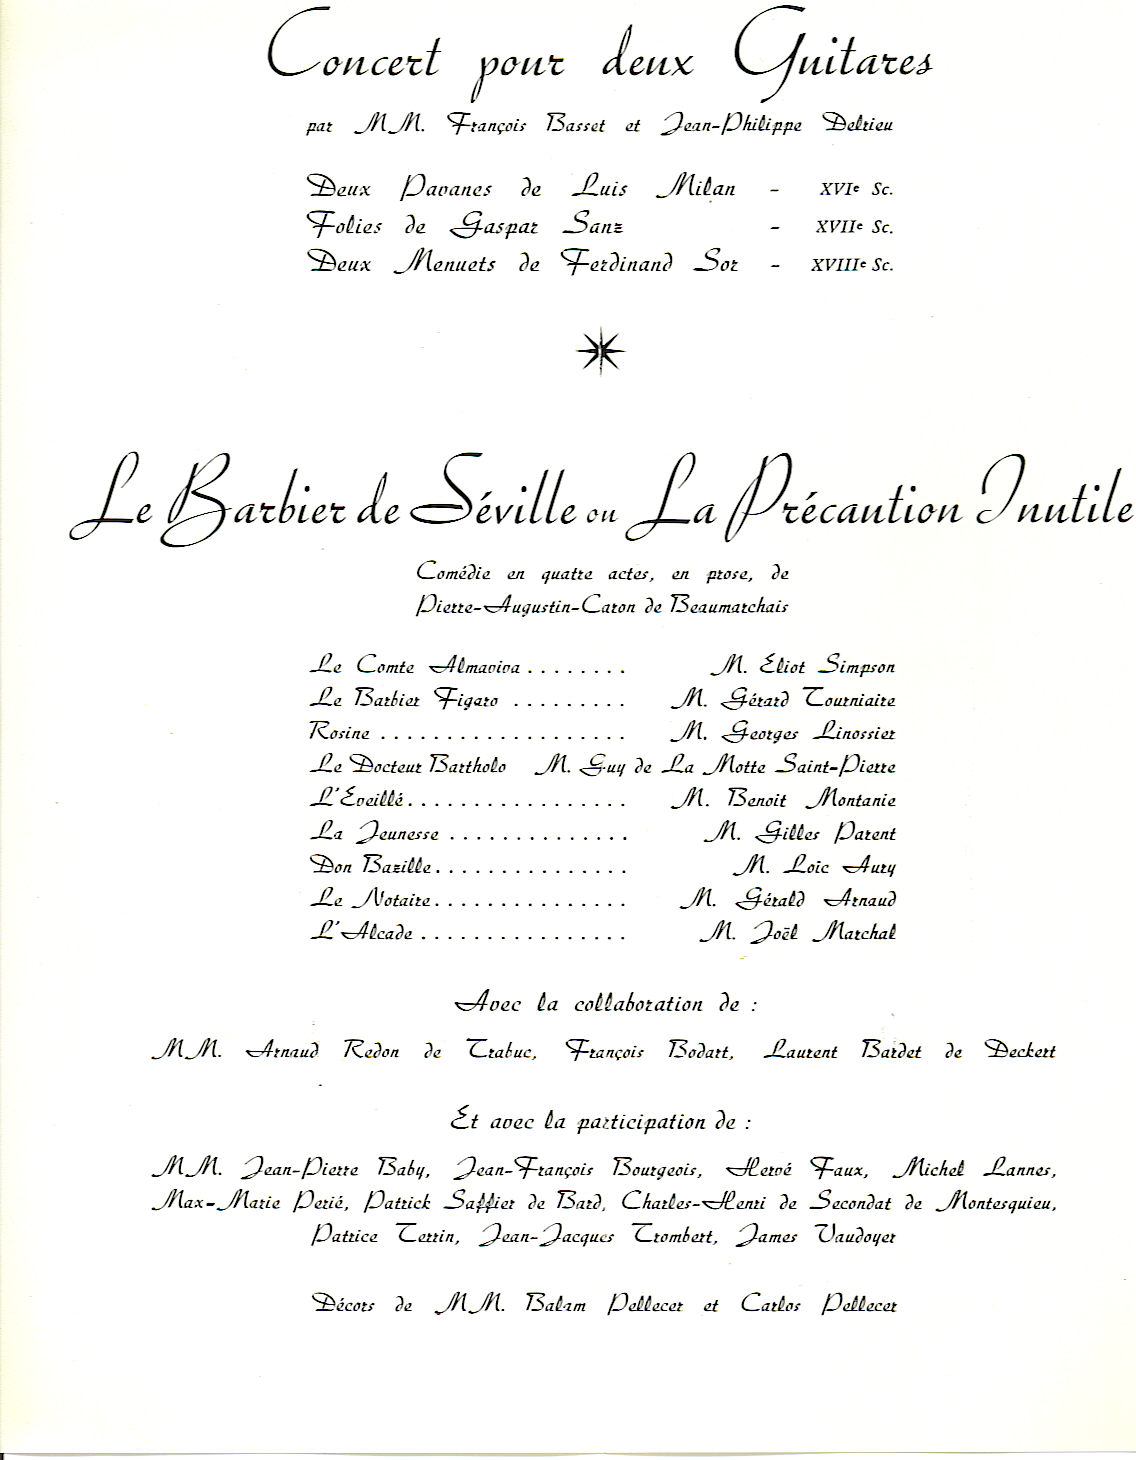 Concert pour deux Guitares
par MM. François Basset et Jean-Philippe Delrieu
Deux Pavanes de Luis Milan - XVIe Sc.
Folies de Gaspar Sanz - XVIIe Sc.
Deux Menuets de Ferdinand Sor - XVIIIe Sc.
Le Barbier de Séville ou La Précaution Inutile
Comédie en quatre actes, en prose, de
Pierre-Augustin-Caron de Beaumarchais
Le Comte Almaviva ........ M. Eliot Simpson
Le Barbier Figaro ......... M. Gérard Tourniaire
Rosine ................... M. Georges Linossier
Le Docteur Bartholo M. Guy de La Motte Saint-Pierre
L'Eveillé................. M. Benoit Montanie
La Jeunesse .............. M. Gilles Parent
Don Bazille............... M. Loïc Aury
Le Notaire............... M. Gérald Arnaud
L'Alcade ................ M. Joël Marchal
Avec la collaboration de :
MM. Arnaud Redon de Trabuc, François Bodart, Laurent Bardet de Deckert
Et avec la participation de :
MM. Jean-Pierre Baby, Jean-François Bourgeois, Hervé Faux, Michel Lannes,
Max-Marie Perié, Patrick Saffier de Bard, Charles-Henri de Secondat de Montesquieu,
Patrice Terrin, Jean-Jacques Trombert, James Vaudoyer
Décors de MM. Balam Pellecer et Carlos Pellecer